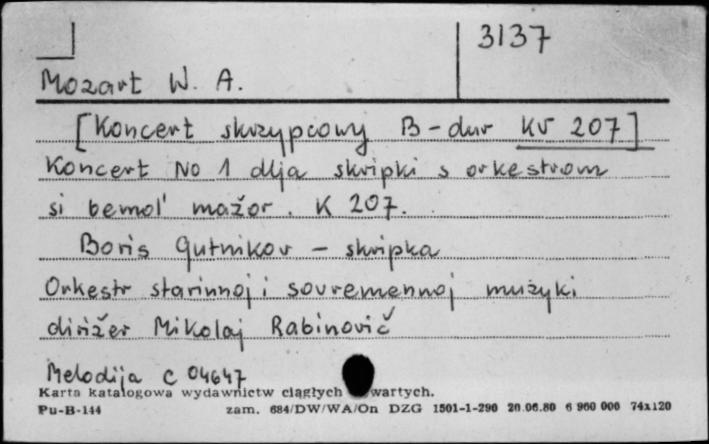 3137
Mozart W. A.
[Koncert skrzypcowy B-dur KV 207]
Koncert No 1 dlja skripki s orkestrom
si bemol' mažor. K 207.
Boris Gutnikov – skripka
Orkestr starinnoj i sovremennoj muzyki
dirižer Mikolaj Rabinovič
Melodija C 04647
Karta katalogowa wydawnictw ciągłych wartych.
Pu-B-144 zam. 684/DW/WA/On DZG 1501-1-290 20.06.80 6 960 000 74x120